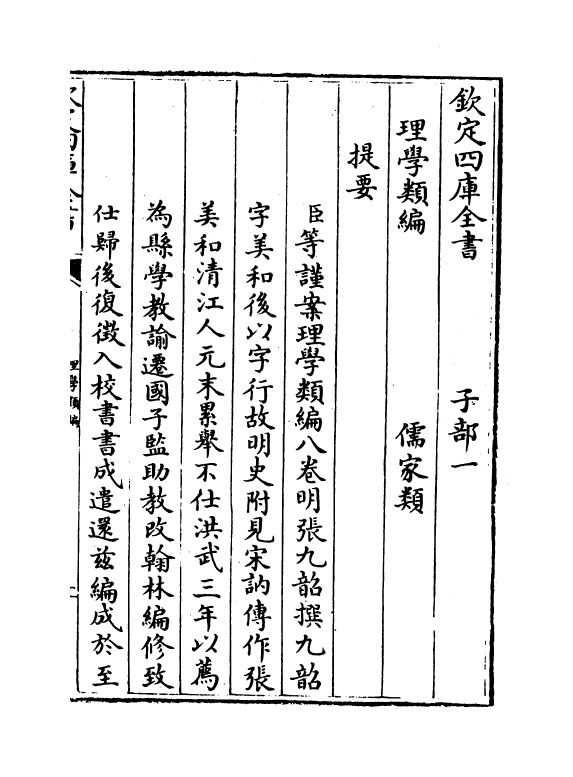 欽定四庫全書　子部一
理學類編　儒家類
提要
臣等謹案理學類編八卷明張九韶撰九韶
字美和後以字行故明史附見宋訥傳作張
美和清江人元末累舉不仕洪武三年以薦
為縣學教諭遷國子監助教改翰林編修致
仕歸後復徵入校書書成遣還兹編成於至
理學類編